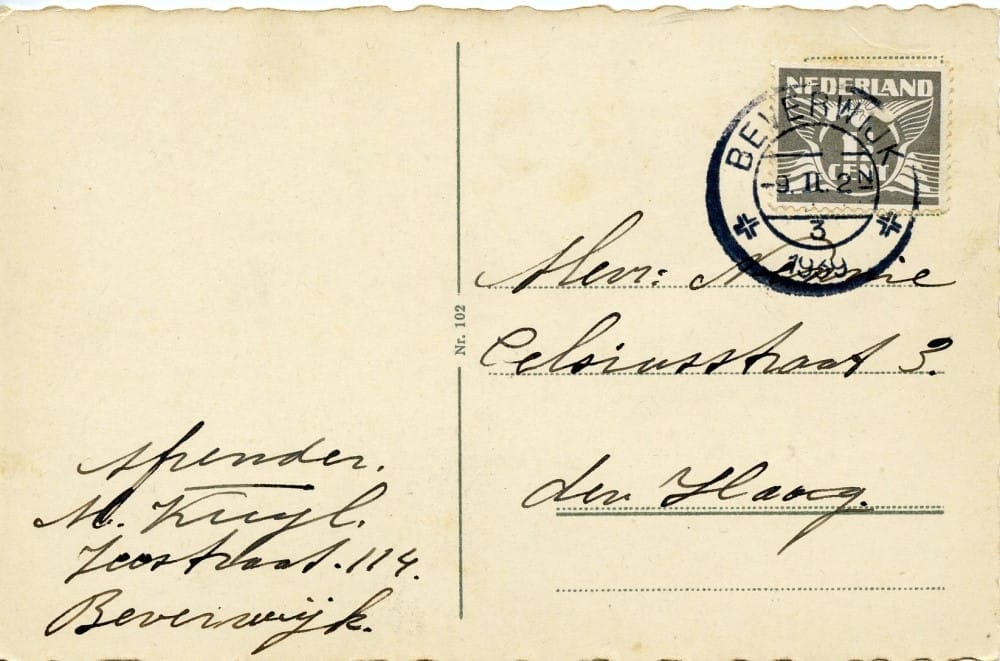 NEDERLAND
1½
CENT
BEVERWIJK
19.II.2N
3
1939
Mevr:
Celsiusstraat 3.
den Haag.
Nr. 102
Afzender.
M. Kuyl.
Zeestraat. 114.
Beverwijk.